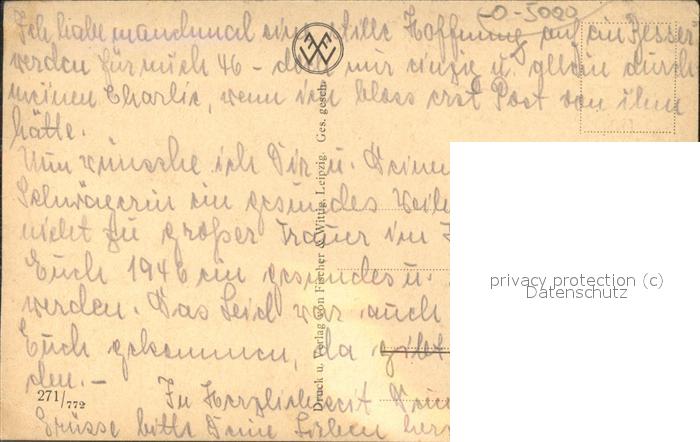 O-5000
Ich habe manchmal eine stille Hoffnung auf ein Besser
werden für mich 46 – doch nur einzig u. allein durch
meinen Charlie, wenn ich bloss erst Post von ihm
hätte.
Nun wünsche ich Dir u. Deiner
Schwägerin ein gesundes Weih
nicht zu großer Trauer im
Euch 1946 ein gesundes u.
werden. Das Leid war auch
Euch gekommen, da
den. –
In Herzlichkeit Deine
Grüsse bitte Deine Lieben herz
271/772
Druck u. Verlag von Fischer & Wittig, Leipzig. Ges. gesch.
privacy protection (c)
Datenschutz